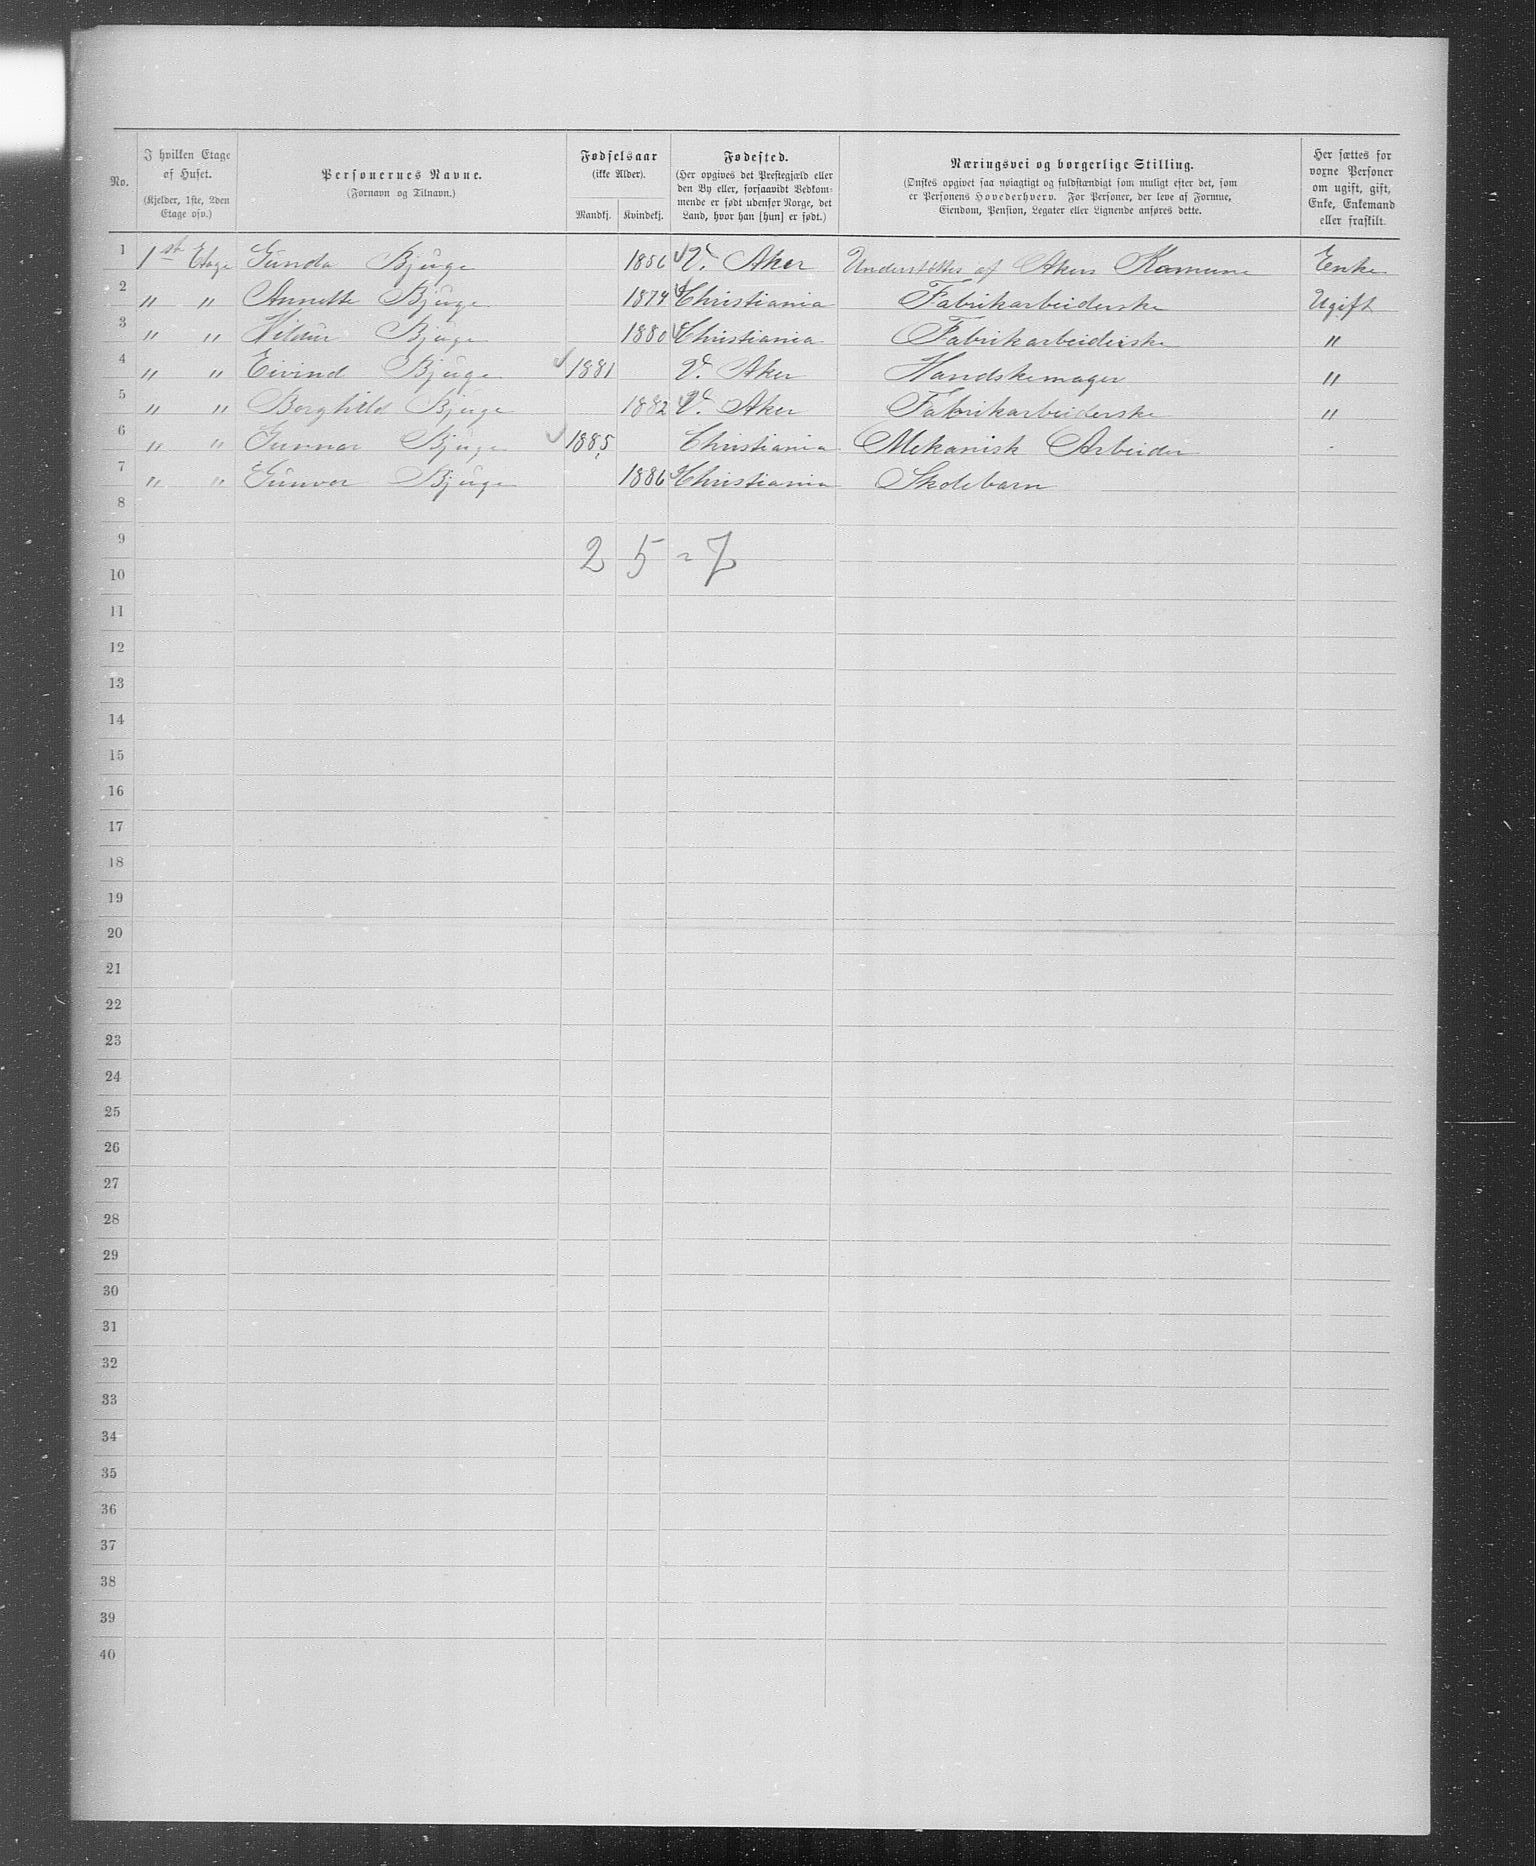 No.
I hvilken Etage
af Huset.
(Kjelder, 1ste, 2den
Etage osv.)
Personernes Navne.
(Fornavn og Tilnavn.)
Fødselsaar
(ikke Alder).
Mandkj. Kvindekj.
Fødested.
(Her opgives det Prestegjæld eller
den By eller, forsaavidt Vedkom-
mende er født udenfor Norge, det
Land, hvor han [hun] er født.)
Næringsvei og borgerlige Stilling.
(Ønskes opgivet saa nøiagtigt og fuldstændigt som muligt efter det, som
er Personens Hovederhverv. For Personer, der leve af Formue,
Eiendom, Pension, Legater eller Lignende anføres dette.
Her sættes for
voxne Personer
om ugift, gift,
Enke, Enkemand
eller fraskilt.
1 1st Etage Gunda Bjuge 1856 V. Aker Understöttes af Akers Komune Enke
2 " " Annette Bjuge 1874 Christiania Fabrikarbeiderske Ugift
3 " " Hildur Bjuge 1880 Christiania Fabrikarbeiderske "
4 " " Eivind Bjuge 1881 V. Aker Handskemager "
5 " " Borghild Bjuge 1882 V. Aker Fabrikarbeiderske "
6 " " Gunnar Bjuge 1885 Christiania Mekanisk Arbeider
7 " " Gunvor Bjuge 1886 Christiania Skolebarn
8
9
2 5 = 7
10
11
12
13
14
15
16
17
18
19
20
21
22
23
24
25
26
27
28
29
30
31
32
33
34
35
36
37
38
39
40